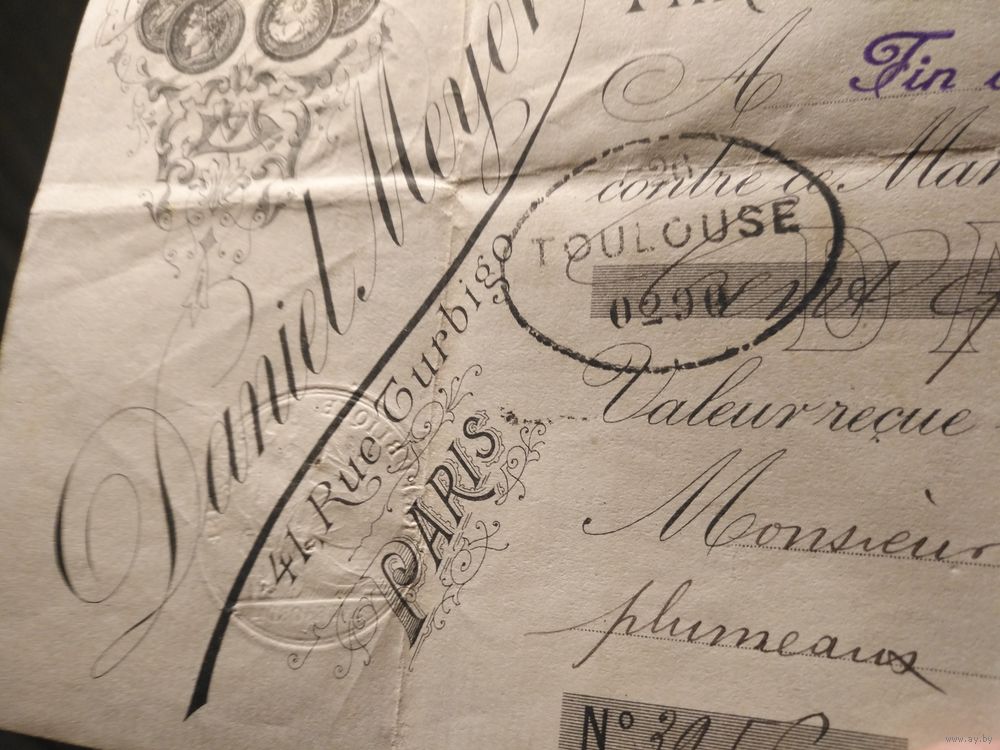 Daniel Meyer
41, Rue Turbigo
PARIS
A Fin
contre ce Man
TOULOUSE
0290
Valeur reçue
Monsieur
plumeaux
Nº
www.ay.by